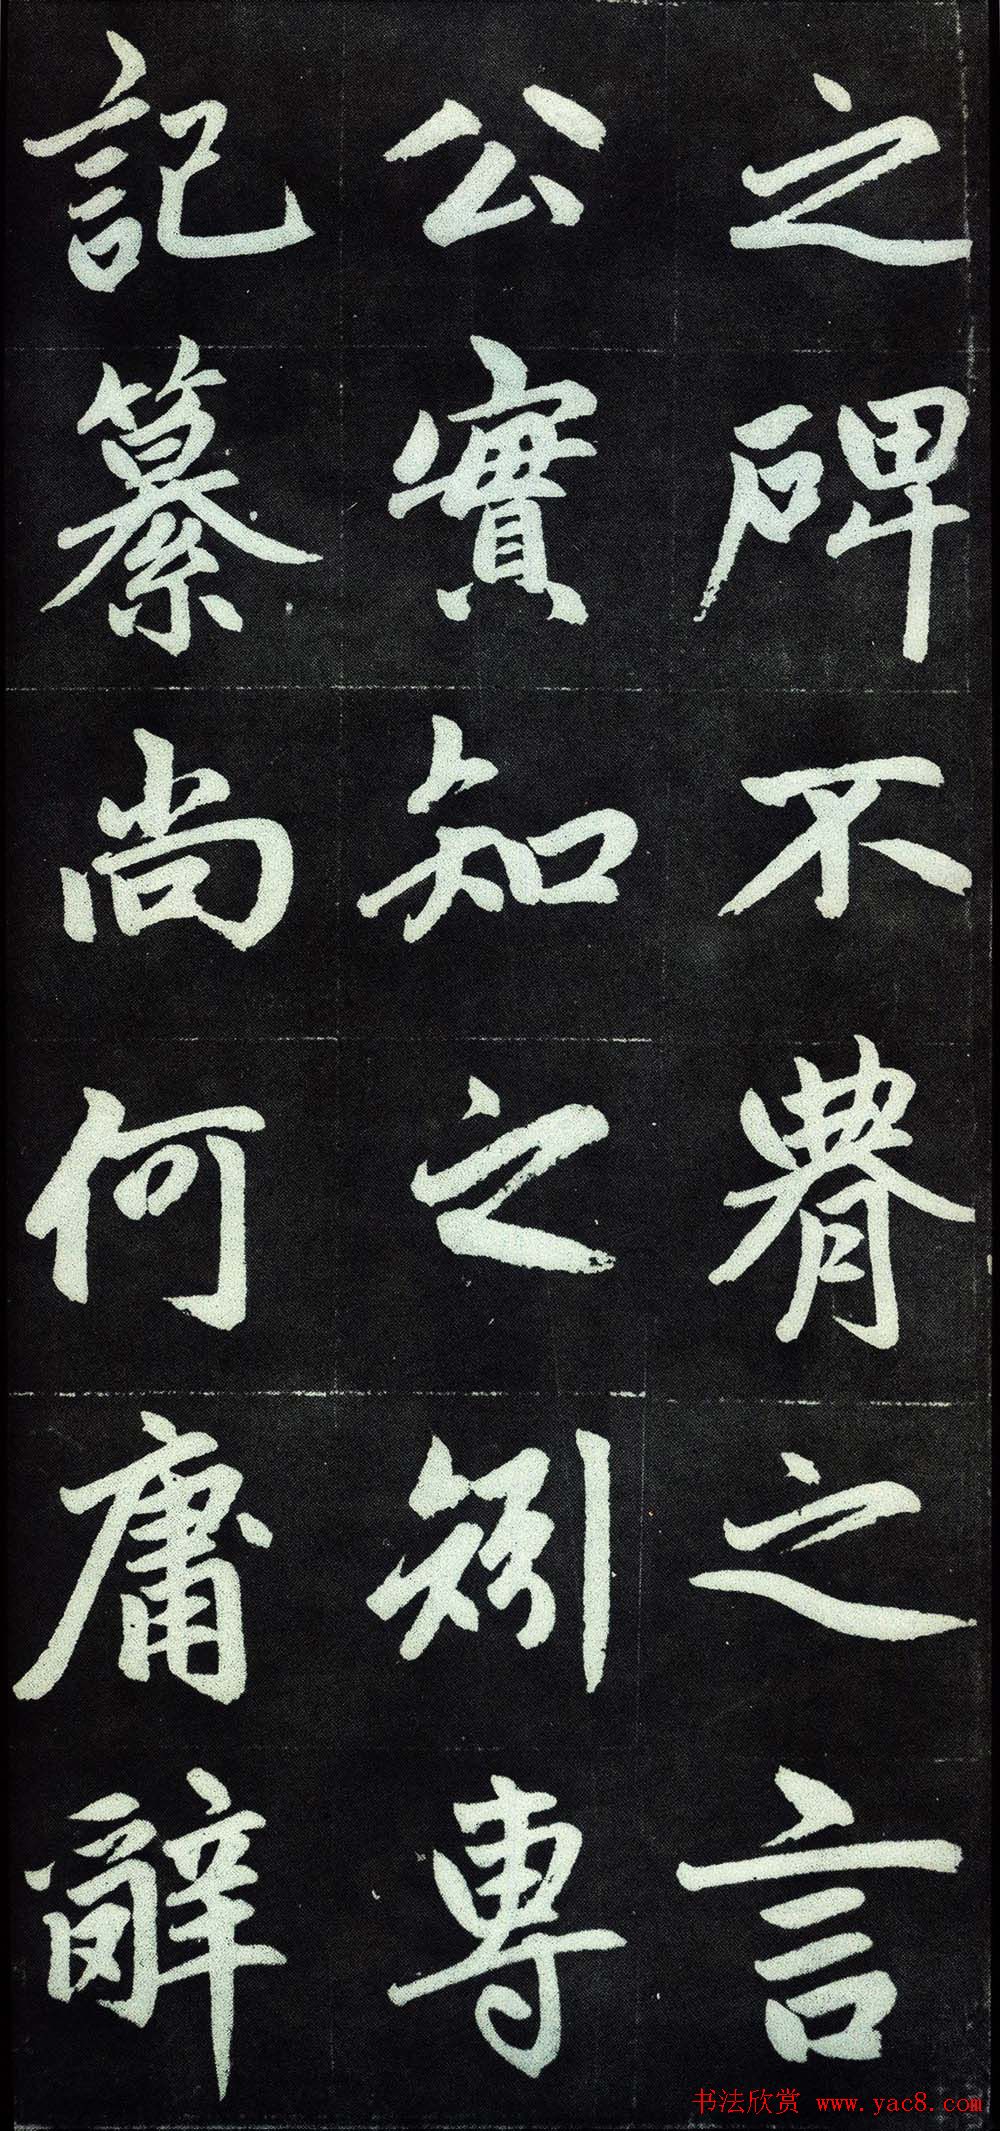 之碑不之言
公實知之矧專
記纂尚何庸辭
书法欣赏 www.yac8.com